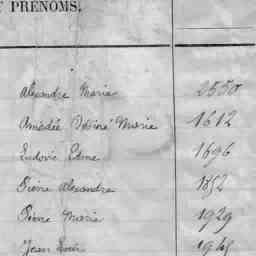 PRENOMS.
Alexandre Marie 2550
Amédée Désiré Marie 1612
Ludovic Edme 1696
Pierre Alexandre 1852
Pierre Marie 1929
Jean